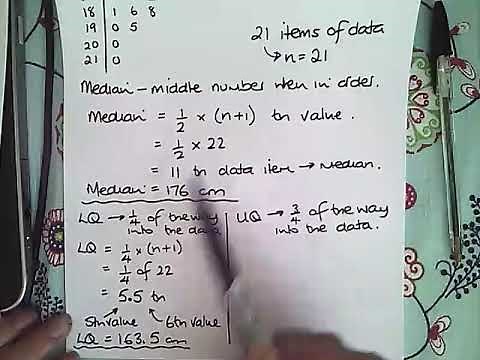 18 | 1 6 8
19 | 0 5
20 | 0
21 | 0
21 items of data
→ n = 21
Median – middle number when in order.
Median = 1/2 × (n+1) th value.
= 1/2 × 22
= 11 th data item → Median.
Median = 176 cm
LQ → 1/4 of the way into the data
LQ = 1/4 × (n+1)
= 1/4 of 22
= 5.5 th
5th value 6th value
LQ = 163.5 cm
UQ → 3/4 of the way
into the data.